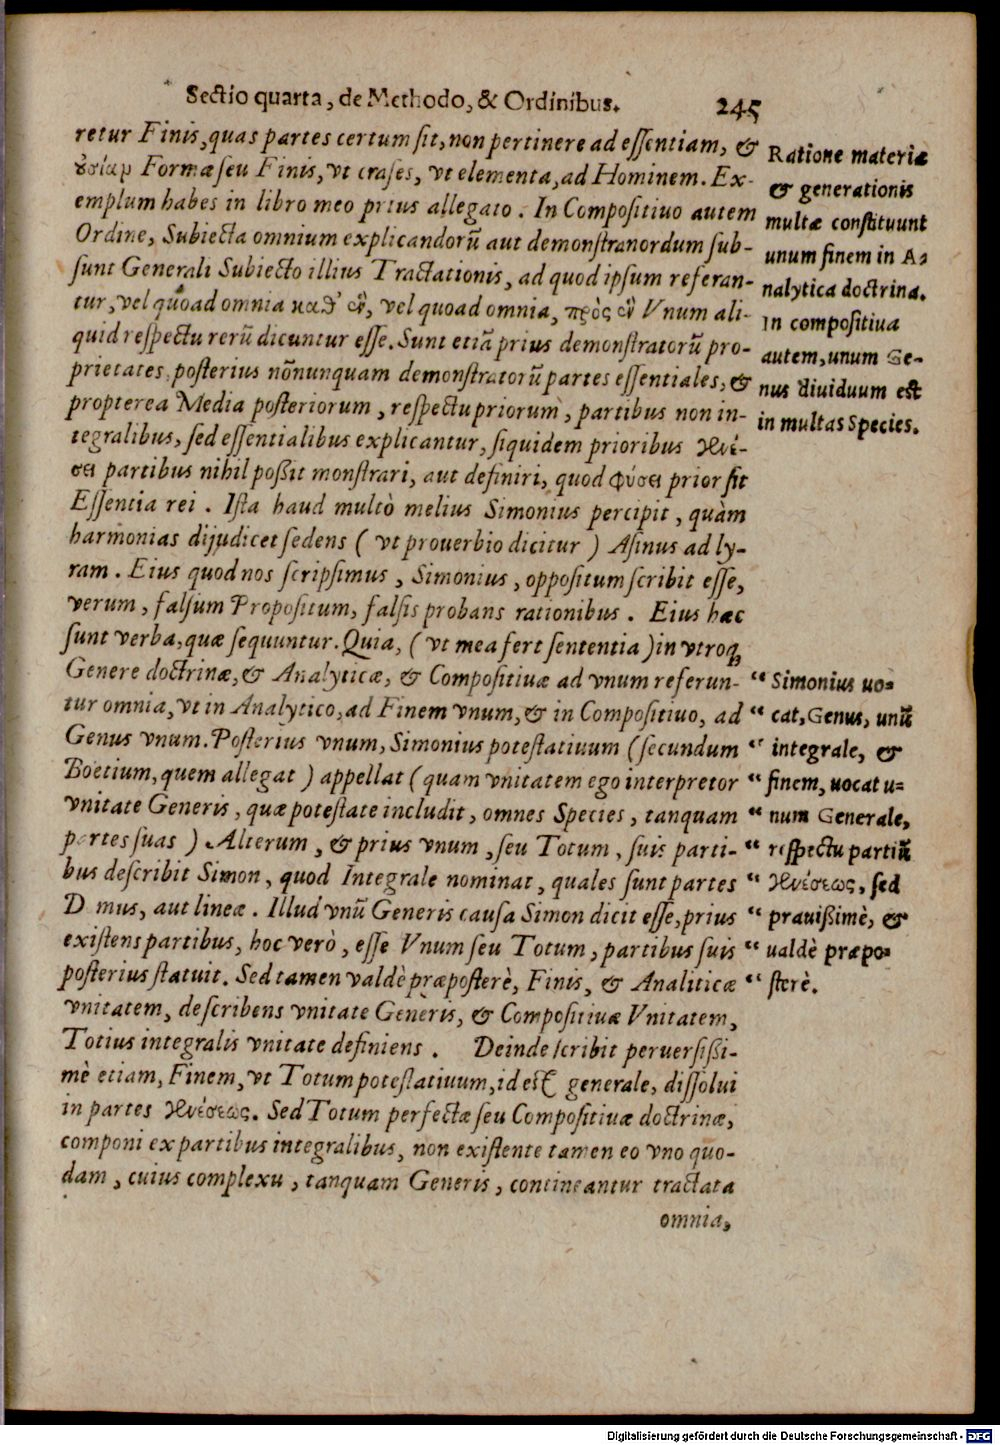 Sectio quarta, de Methodo, & Ordinibus. 245
retur Finis, quas partes certum sit, non pertinere ad essentiam, &
ȣ̓σίαμ Formæ seu Finis, vt crases, vt elementa, ad Hominem. Ex-
emplum habes in libro meo prius allegato. In Compositiuo autem
Ordine, Subiecta omnium explicandorũ aut demonstranordum sub-
sunt Generali Subiecto illius Tractationis, ad quod ipsum referan-
tur, vel quoad omnia καθ' ἓν, vel quoad omnia, πρὸς ἓν Vnum ali-
quid respectu rerũ dicuntur esse. Sunt etiã prius demonstratorũ pro-
prietates, posterius nõnunquam demonstratorũ partes essentiales, &
propterea Media posteriorum, respectu priorum, partibus non in-
tegralibus, sed essentialibus explicantur, siquidem prioribus γενέ-
σει partibus nihil poßit monstrari, aut definiri, quod φύσει prior sit
Essentia rei. Ista haud multò melius Simonius percipit, quàm
harmonias dijudicet sedens ( vt prouerbio dicitur ) Asinus ad ly-
ram. Eius quod nos scripsimus, Simonius, oppositum scribit esse,
verum, falsum Propositum, falsis probans rationibus. Eius hæc
sunt verba, quæ sequuntur. Quia, ( vt mea fert sententia ) in vtroq́
Genere doctrinæ, & Analyticæ, & Compositiuæ ad vnum referun-
tur omnia, vt in Analytico, ad Finem vnum, & in Compositiuo, ad
Genus vnum. Posterius vnum, Simonius potestatiuum ( secundum
Boetium, quem allegat ) appellat ( quam vnitatem ego interpretor
vnitate Generis, quæ potestate includit, omnes Species, tanquam
partes suas ) Alterum, & prius vnum, seu Totum, suis parti-
bus describit Simon, quod Integrale nominat, quales sunt partes
D mus, aut lineæ. Illud vnũ Generis causa Simon dicit esse, prius
existens partibus, hoc verò, esse Vnum seu Totum, partibus suis
posterius statuit. Sed tamen valdè præposterè, Finis, & Analiticæ
vnitatem, describens vnitate Generis, & Compositiuæ Vnitatem,
Totius integralis vnitate definiens. Deinde scribit peruersißi-
mè etiam, Finem, vt Totum potestatiuum, id est generale, dissolui
in partes γενέσεως. Sed Totum perfectæ seu Compositiuæ doctrinæ,
componi ex partibus integralibus, non existente tamen eo vno quo-
dam, cuius complexu, tanquam Generis, contineantur tractata
omnia,
Ratione materiæ
& generationis
multæ constituunt
unum finem in A-
nalytica doctrina.
In compositiua
autem, unum Ge-
nus diuiduum est
in multas Species.
“ Simonius uo-
“ cat, Genus, unũ
“ integrale, &
“ finem, uocat u-
“ num Generale,
“ respectu partiũ
“ γενέσεως, sed
“ prauißimè, &
“ ualdè præpo-
“ sterè.
Digitalisierung gefördert durch die Deutsche Forschungsgemeinschaft - DFG